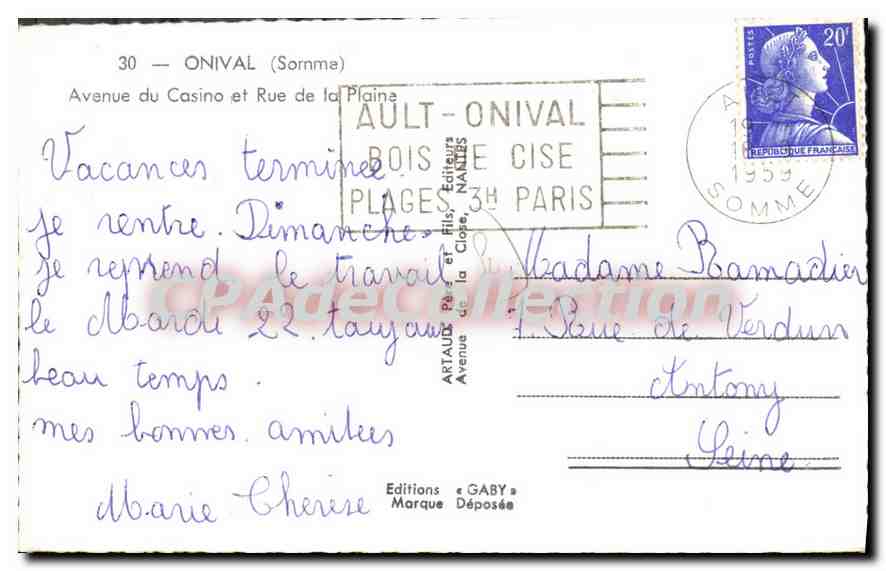 30 — ONIVAL (Somme)
Avenue du Casino et Rue de la Plaine
Vacances terminée.
je rentre. Dimanche.
je reprend le travail
le Mardi 22. toujours
beau temps.
mes bonnes. amitiees
Marie Therèse
AULT-ONIVAL
BOIS DE CISE
PLAGES 3H PARIS
ARTAUD Père et Fils, Editeurs
Avenue de la Close, NANTES
Editions « GABY »
Marque Déposée
POSTES
20F
REPUBLIQUE FRANCAISE
1959
SOMME
Madame Ramadier
7 Rue de Verdun
Antony
Seine
CPAdeCollection